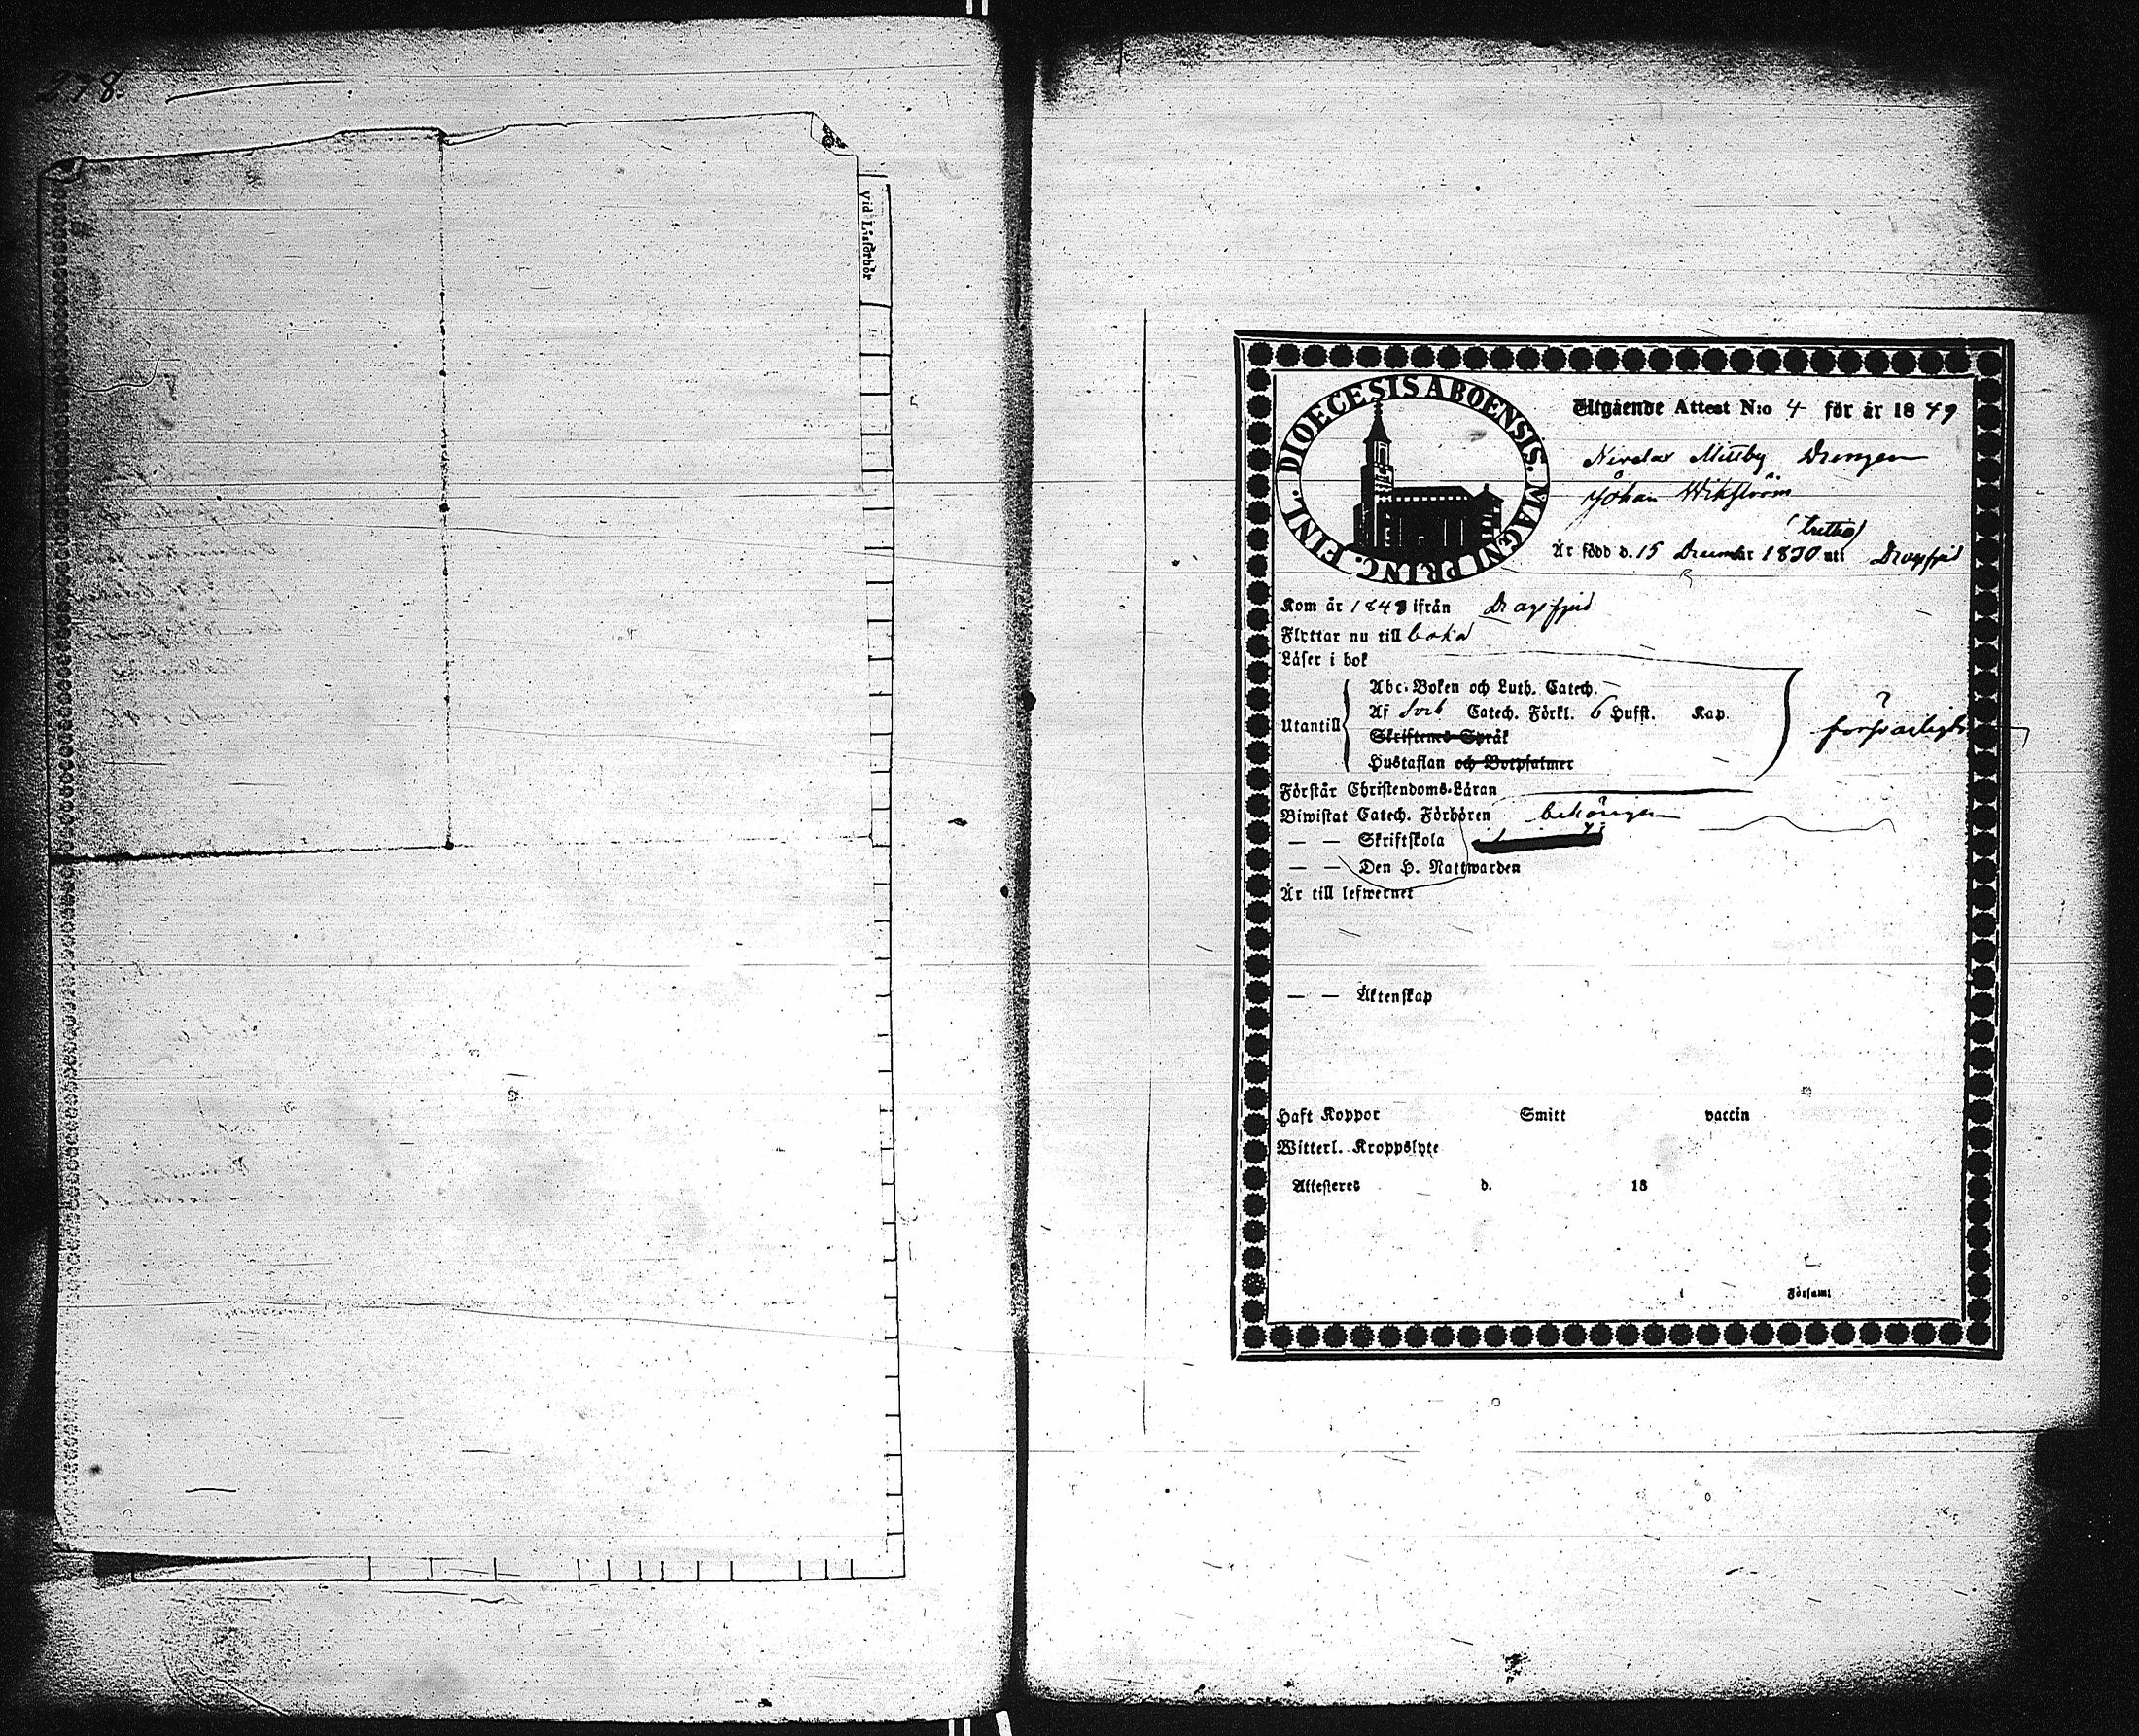 278.
Vid Läsförhör
DIOECESIS ABOENSIS. MAGNI PRINC. FINL.
Utgående Attest N:o 4 för år 1849
Mittby Drengen
Johan Wikström
(trettio)
Är född d. 15 December 1830 uti Dragsfjerd
Kom år 1848 ifrån Dragsfjerd
Flyttar nu till
Läser i bok
Abc-Boken och Luth. Catech.
Utantill Af Sveb Catech. Förkl. 6 Hufst. Kap.
försvarligt
Skriftenes Språk
Hustaflan och Botpsalmer
Förstår Christendoms-Läran
Biwistat Catech. Förhören behörigen
— — Skriftskola
— — Den H. Nattwarden
Är till lefwernet
— — Äktenskap
Haft Koppor Smitt vaccin
Witterl. Kroppslyte
Attesteres d. 18
Församl